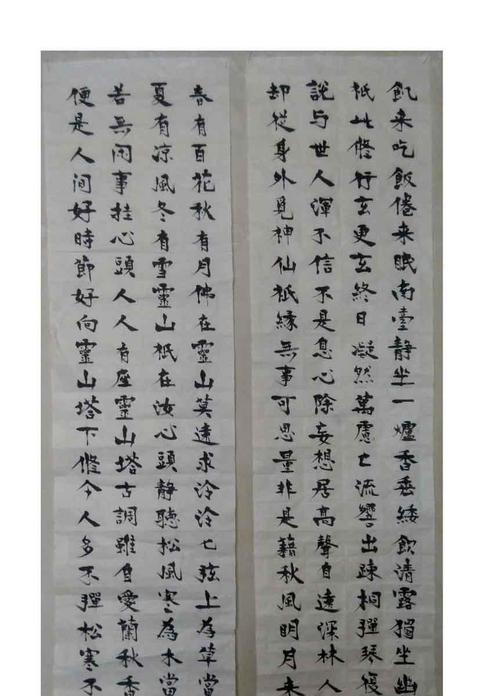 飢来吃飯倦来眠南臺静坐一爐香垂緌飲清露獨坐幽
祇此修行玄更玄終日凝然萬慮亡流響出疎桐彈琴復
説与世人渾不信不是息心除妄想居高聲自遠深林人
却從身外覓神仙祇緣無事可思量非是藉秋風明月来
春有百花秋有月佛在靈山莫遠求泠泠七弦上為草當
夏有凉風冬有雪靈山祇在汝心頭静聽松風寒為木當
若无闲事挂心頭人人有座靈山塔古調雖自愛蘭秋香
便是人间好時節好向靈山塔下修今人多不彈松寒不